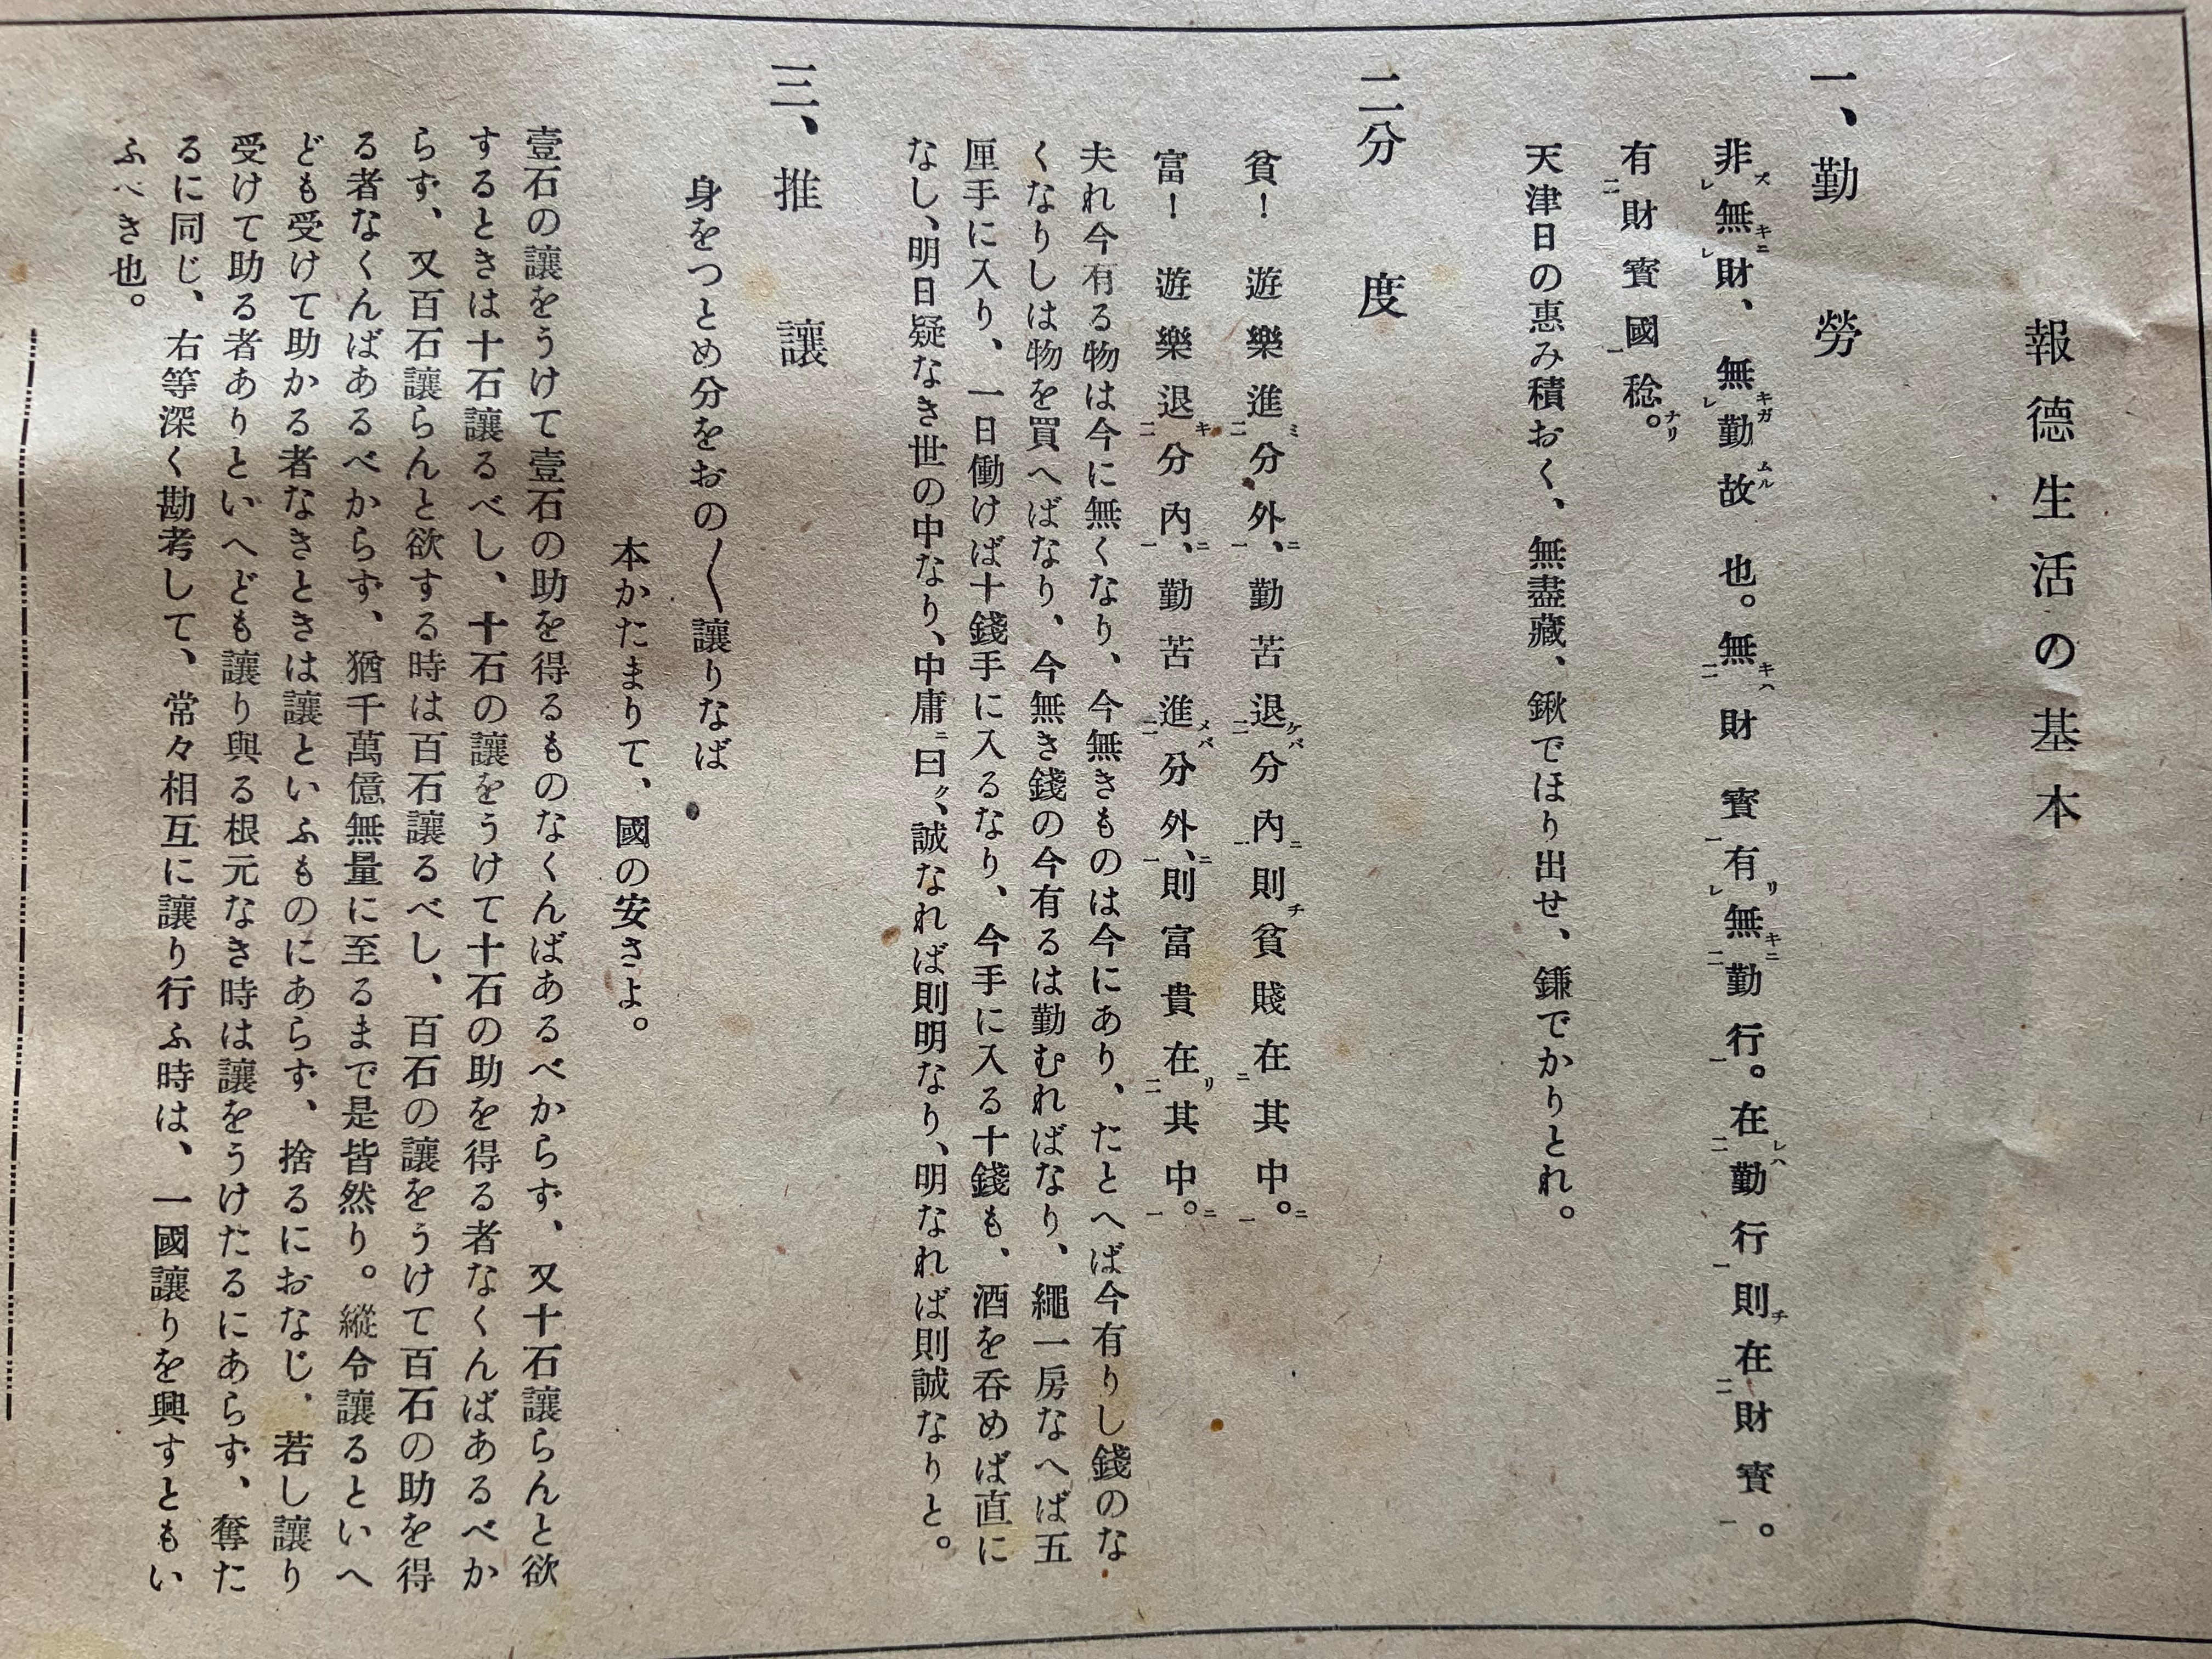 報德生活の基本
一、勤勞
非レ無レ財、無レ勤故也。無二財寳一有レ無二勤行一。在二勤行一則在二財寳一。
有二財寳國一稔。
天津日の惠み積おく、無盡藏、鍬でほり出せ、鎌でかりとれ。
二分度
貧！遊樂進二分外一、勤苦退二分內一則貧賤在二其中一。
富！遊樂退二分內一、勤苦進二分外一、則富貴在二其中一。
夫れ今有る物は今に無くなり、今無きものは今にあり、たとへば今有りし錢のな
くなりしは物を買へばなり、今無き錢の今有るは勤むればなり、繩一房なへば五
厘手に入り、一日働けば十錢手に入るなり、今手に入る十錢も、酒を呑めば直に
なし、明日疑なき世の中なり、中庸ニ曰ク、誠なれば則明なり、明なれば則誠なりと。
三、推讓
身をつとめ分をおの〱讓りなば
本かたまりて、國の安さよ。
壹石の讓をうけて壹石の助を得るものなくんばあるべからず、又十石讓らんと欲
するときは十石讓るべし、十石の讓をうけて十石の助を得る者なくんばあるべか
らず、又百石讓らんと欲する時は百石讓るべし、百石の讓をうけて百石の助を得
る者なくんばあるべからず、猶千萬億無量に至るまで是皆然り。縱令讓るといへ
ども受けて助かる者なきときは讓といふものにあらず、捨るにおなじ、若し讓り
受けて助る者ありといへども讓り與る根元なき時は讓をうけたるにあらず、奪た
るに同じ、右等深く勘考して、常々相互に讓り行ふ時は、一國讓りを興すともい
ふべき也。